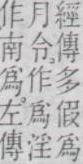 經傳多假爲
月令作爲淫
作南爲左傳